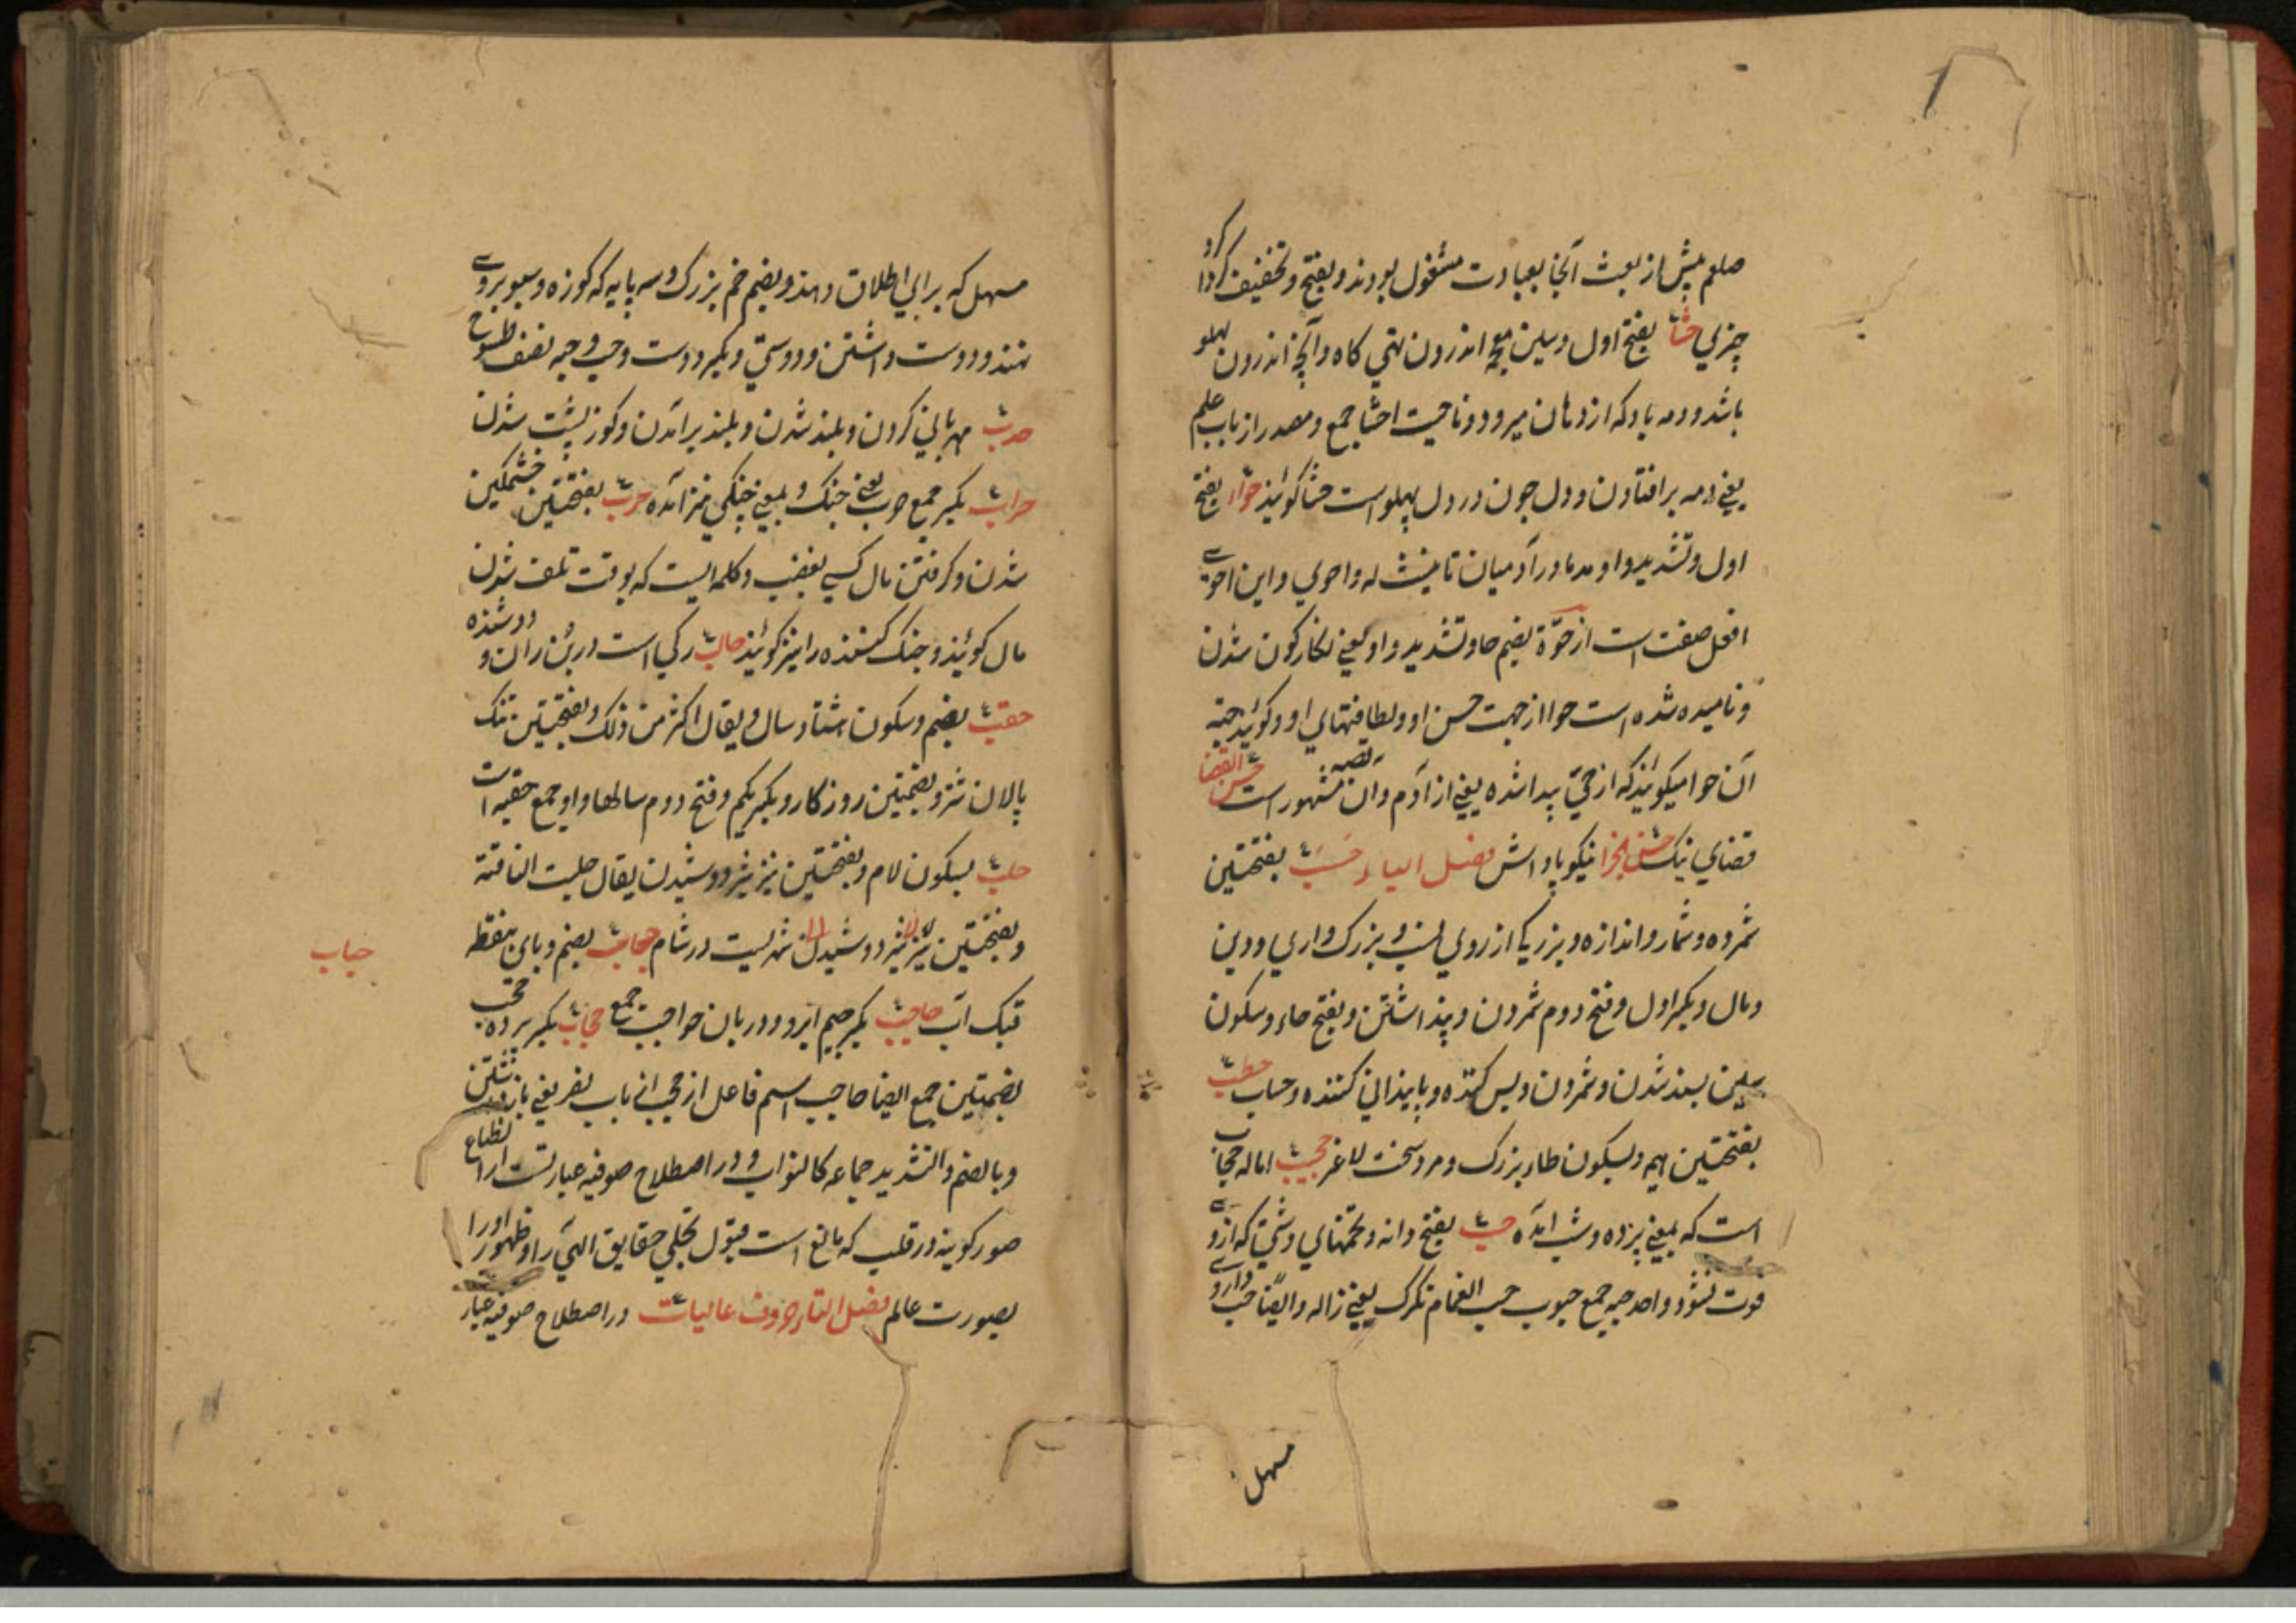 صلعم پیش از بعث آنجا بعبادت مشغول بودند و بفتح و تخفیف کردا کرد
چیزی حشا بفتح اول و سین معجمه اندرون تهی کاه و آنچه اندرون پهلو
باشد و دمه بادکه از دهان میرود و ناحیت احشا جمع و مصدر از باب علم
یعنی دمه بر افتادن و دل چون در دل پهلو است حشا کویند حواء بفتح
اول و تشدید واو مد مادر آدمیان تانیث له واحوی و این احوی
افعل صفت است از حوّة بضم حا و تشدید واو یعنی نکار کون شدن
و نامیده شده است حوا از جهت حسن او و لطافتهای او و کویند حیه
آن حوا میکویند که از حیّ پیدا شده یعنی از آدم و ان قصه مشهور است حسن القضا
قضای نیک حسن الجزا نیکو پاداش فصل الباء حسب بفتحتین
شمرده و شمار و اندازه و بزرکی از روی نسب و بزرک واری و دین
و مال و بکسر اول و فتح دوم شمردن و پنداشتن و بفتح حاء و سکون
سین بسند شدن و شمردن و بس کننده و پایندانی کننده و حساب حطب
بفتحتین هیم و بسکون طاء بزرک و مرد سخت لاغر حجیب اماله حجاب
است که بمعنی پرده و شب آمده حب بفتح دانه و تخمهای دشتی که ازو
قوت نشود واحد حبه جمع حبوب حب الغمام تکرک یعنی ژاله و ایضا حب داروی
مسهل
مسهل که برای اطلاق دهند و بضم خم بزرک و سه پایه که کوزه و سبو بروی
نهند و دوست داشتن و دوستی و بکسر دوست و حب و حبه نصف طسوج
حدب مهربانی کردن و بلند شدن و بلند برآمدن و کوز پشت شدن
حراب بکسر جمع حرب یعنی جنک و بمعنی جنکی نیز آمده حرب بفتحتین خشمکین
شدن و کرفتن مال کسی بغضب و کلمه ایست که بوقت تلف شدن
مال کویند و جنک کننده را نیز کویند حالب رکی است در بن ران و دوشنده
حقب بضم و سکون هشتاد سال و یقال اکثر من ذلک و بفتحتین تنک
پالان شتر و بضمتین روزکار و بکسر یکم و فتح دوم سالها و او جمع حقبه است
حلب بسکون لام و بفتحتین نیز شیر دوشیدن یقال حلبت الناقة
و بفتحتین نیز شیر دوشیدن شهریست در شام حباب بضم و بای بنقطه
حباب
تبک آب حاجب بکسر جیم ابرو و دربان حواجب جمع حجاب بکسر پرده حجب
بضمتین جمع ایضا حاجب اسم فاعل از حجب از باب نصر یعنی باز داشتن
و بالضم و التشدید جماعه کالنواب و در اصطلاح صوفیه عبارتست از انطباع
صور کونیه در قلب که مانع است قبول تجلی حقایق الهی را و ظهور اورا
بصورت عالم فصل التاء حروف عالیات در اصطلاح صوفیه عبار